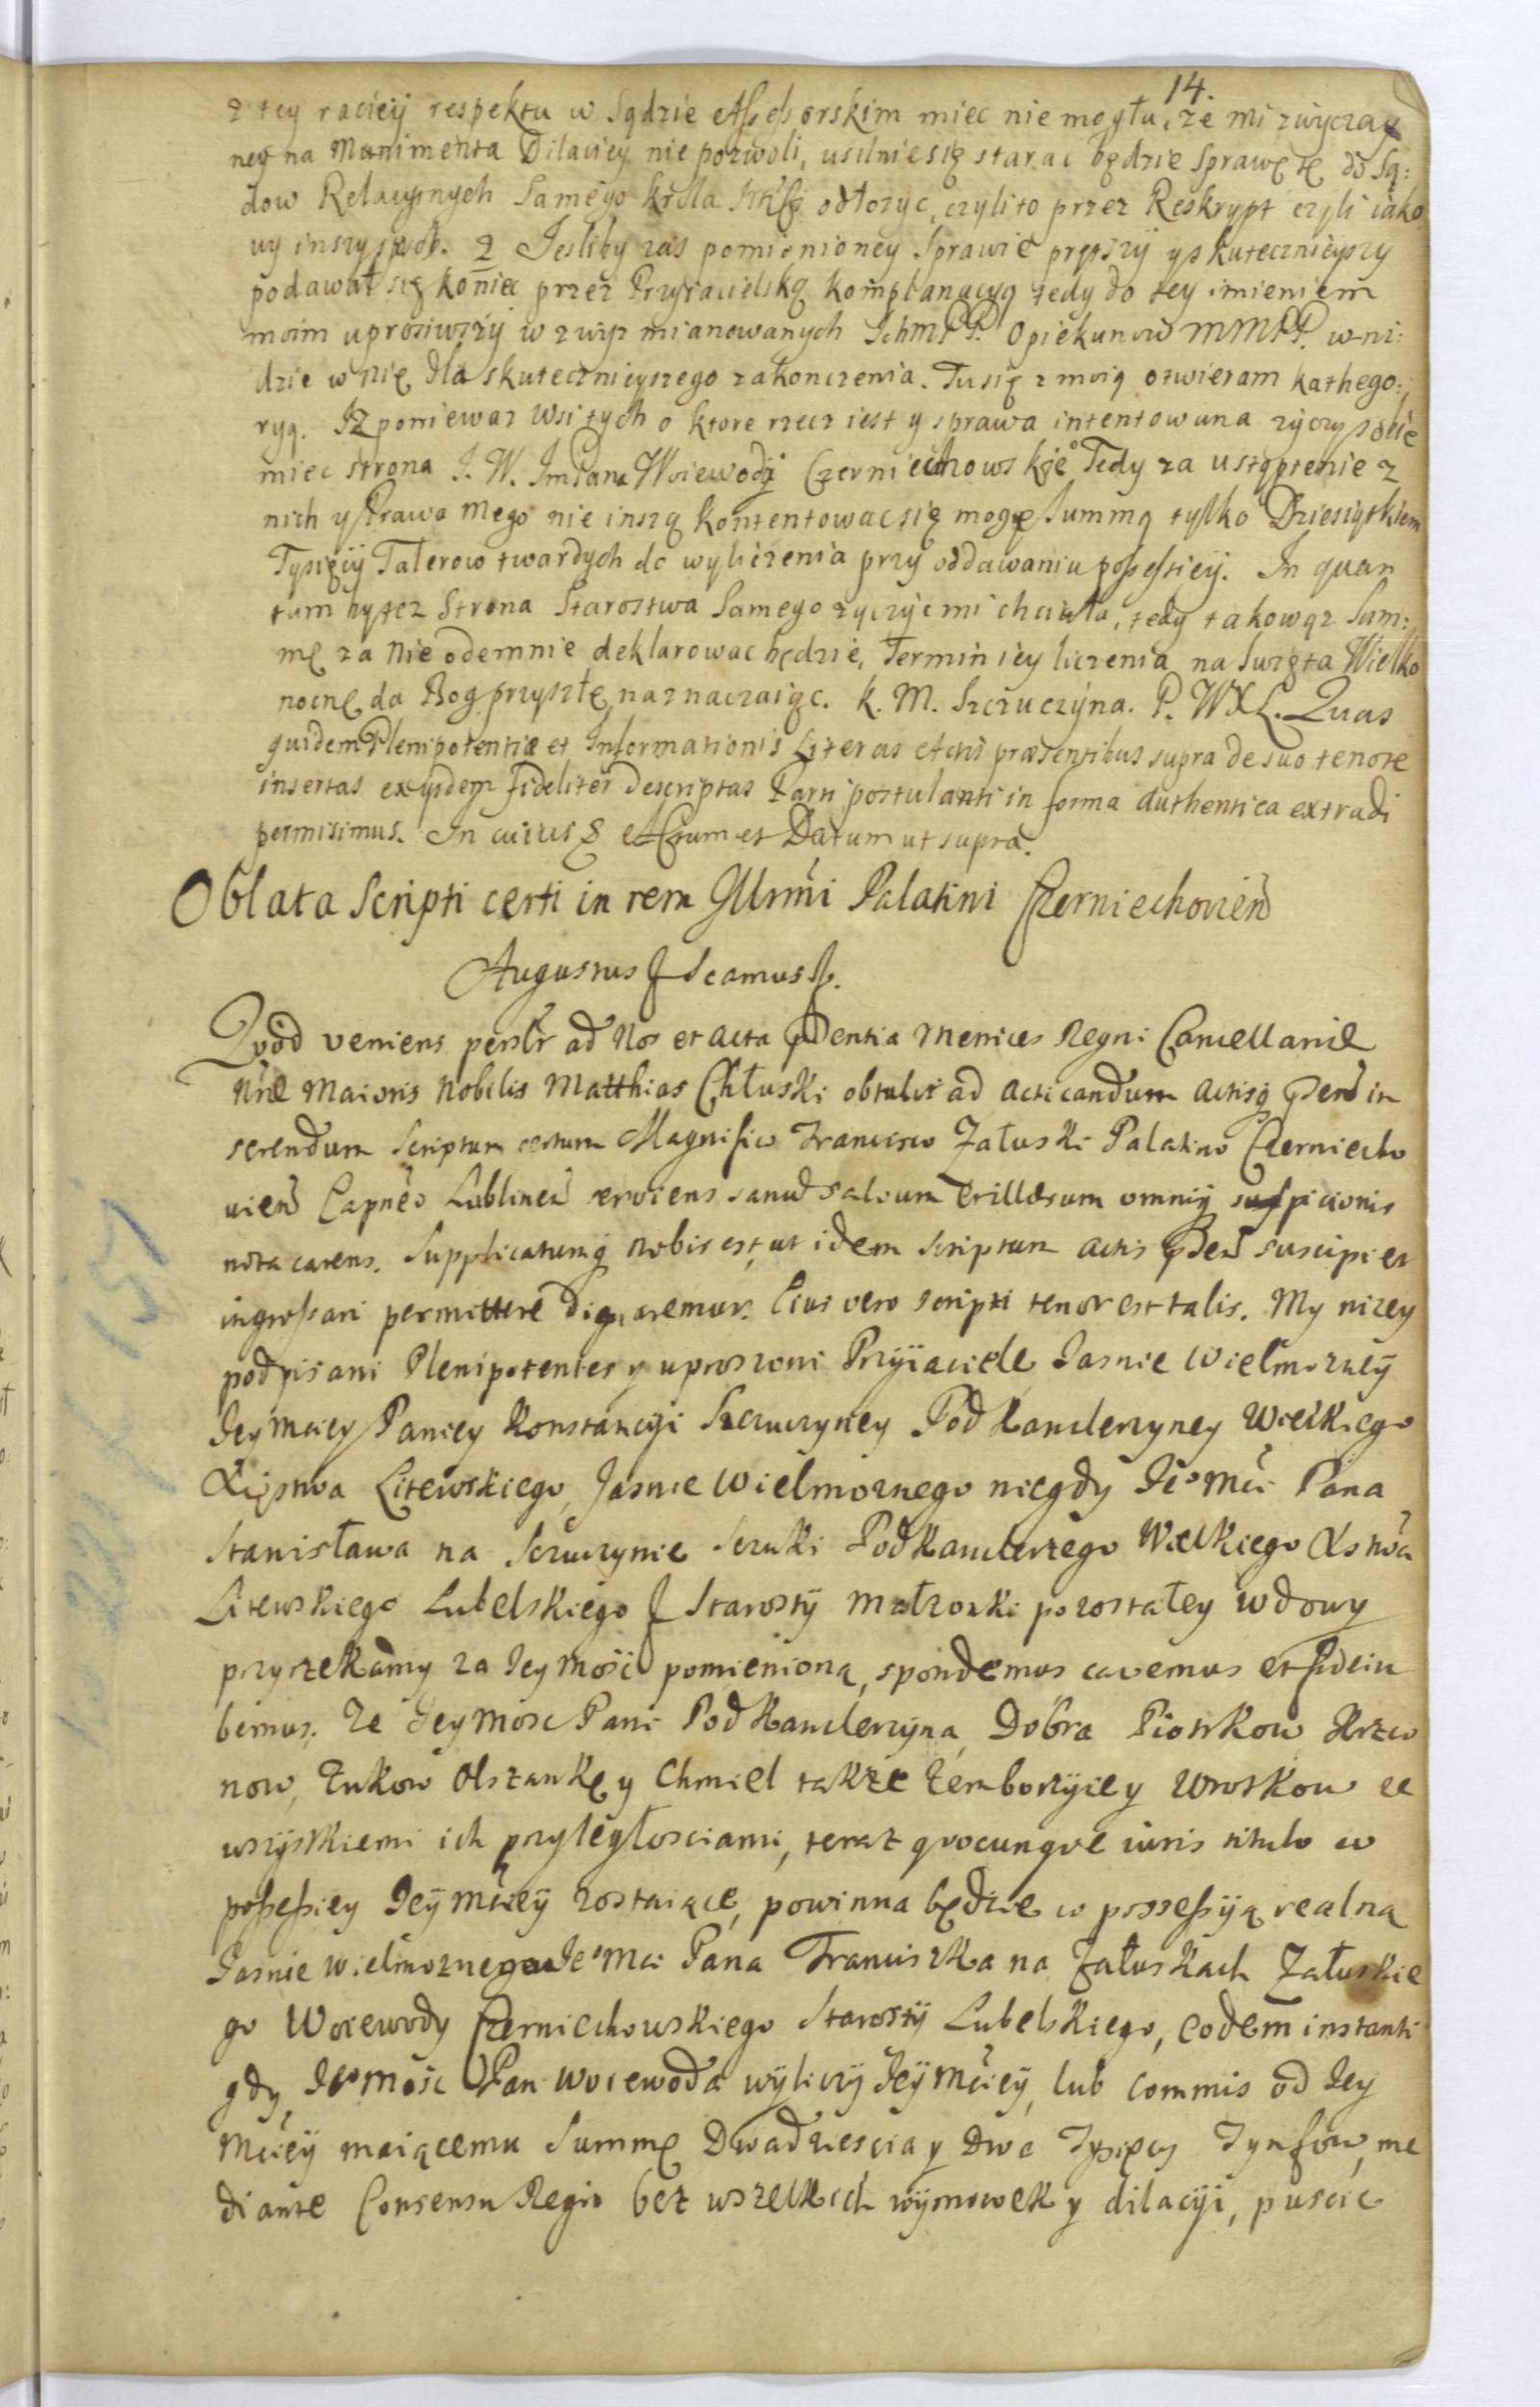 14.
z tey racieÿ respektu w Sądzie Assessorskim miec nie mogła, że mi zwyczay
ney na Munimenta Dilaciey nie pozwoli, usilnie się starac będzie Sprawę tę do Są:
dow Relacyinych Samego krola odłozyc, czyli to przez Reskrypt czyli iako
wy inszy sposob. 2 Jesliby zas pomienioney Sprawie prętszÿ y skutecznieyszy
podawał się koniec przez Przyiacielską komplanacyą tedy do tey imieniem
moim uprosiwszÿ wzwyz mianowanych IchmPP. Opiekunow MMPP. w-ni:
dzie w nię dla skutecznieyszego zakonczenia. Tu się z moią otwieram kathego:
ryą. Iz poniewaz wsi tych o ktore rzecz iest y sprawa intentowana zyczy sobie
miec strona J. W. ImPana Woiewody Czerniechowskiego Tedy za ustąpienie z
nich y Prawa mego nie inszą kontentowac się mogę Summą tylko Dziesiątkiem
Tysięcÿ Talerow twardych do wyliczenia przy oddawaniu possessieÿ. In quan
tum by tez Strona Starostwa Samego zyczyc mi chciała, tedy takowąz Sum:
mę za nie odemnie deklarowac będzie, Termin iey liczenia na Swięta Wielko
nocne da Bog przyszłe naznaczaiąc. K. M. Szczuczyna. P. WXL. Quas
quidem Plenipotentiæ et Informationis Literas Actis præsentibus supra de suo tenore
insertas exÿsdem fideliter descriptas Parti postulanti in forma authentica extradi
permisimus. In cuius &. Actum et Datum ut supra.
Oblata Scripti certi in rem GUrmi Palatini Czerniechovien
Augustus & Scamus &.
Quod veniens persolr ad Nos et acta pdentia Metrices Regni Cancellariæ
Nræ Maioris Nobilis Matthias Chłuski obtulit ad acticandum actisq pden in
serendum Scriptum certum Magnifico Francisco Załuski Palatino Czerniecho
vien Capneo Lublinen serviens sanum salvum et illæsum omniq suspicionis
nota carens. Supplicatumq nobis est, ut idem scriptum actis pden suscipi et
ingrossari permittere dignaremur. Cius vero scripti tenor est talis. My nizey
podpisani Plenipotentes y uproszoni Przÿiaciele Jasnie Wielmozneÿ
Jeymciey Paniey Konstancÿi Szczuczyney Pod Kanclerzyney Wielkiego
Xięstwa Litewskiego, Jasnie Wielmoznego niegdy Je°Mci Pana
Stanisława na Szczuczynie Szczuki Podkanclerzego Wielkiego Xstwa
Litewskiego Lubelskiego & Starostÿ małzonki pozostałey wdowy
przyrzekamy za Jeymość pomienioną, spondemus cavemus et fideiu
bemus. Ze Jeymosc Pani Podkanclerzyna, Dobra Piotrkow Krzcio
now, Zukow Olszankę y Chmiel także Zemborzÿce y Wrotkow ze
wszÿstkiemi ich przyległosciami, teraz quocunque iuris titulo w
possessiey Jeÿmcieÿ zostaiące, powinna będzie w possessÿą realną
Jasnie wielmoznego Je°Mci Pana Franciszka na Załuskach Załuskie
go Woiewody Czerniechowskiego Starostÿ Lubelskiego, eodem instanti
gdy Je°mosc Pan Woiewoda wÿliczÿ Jeÿmcieÿ, lub commis od Jey
Mcieÿ maiącemu Summę Dwadziescia y Dwa Tysięcy Tynfow, me
diante Consensu Regio bez wszelkich wÿmowek y dilacÿi, puscic